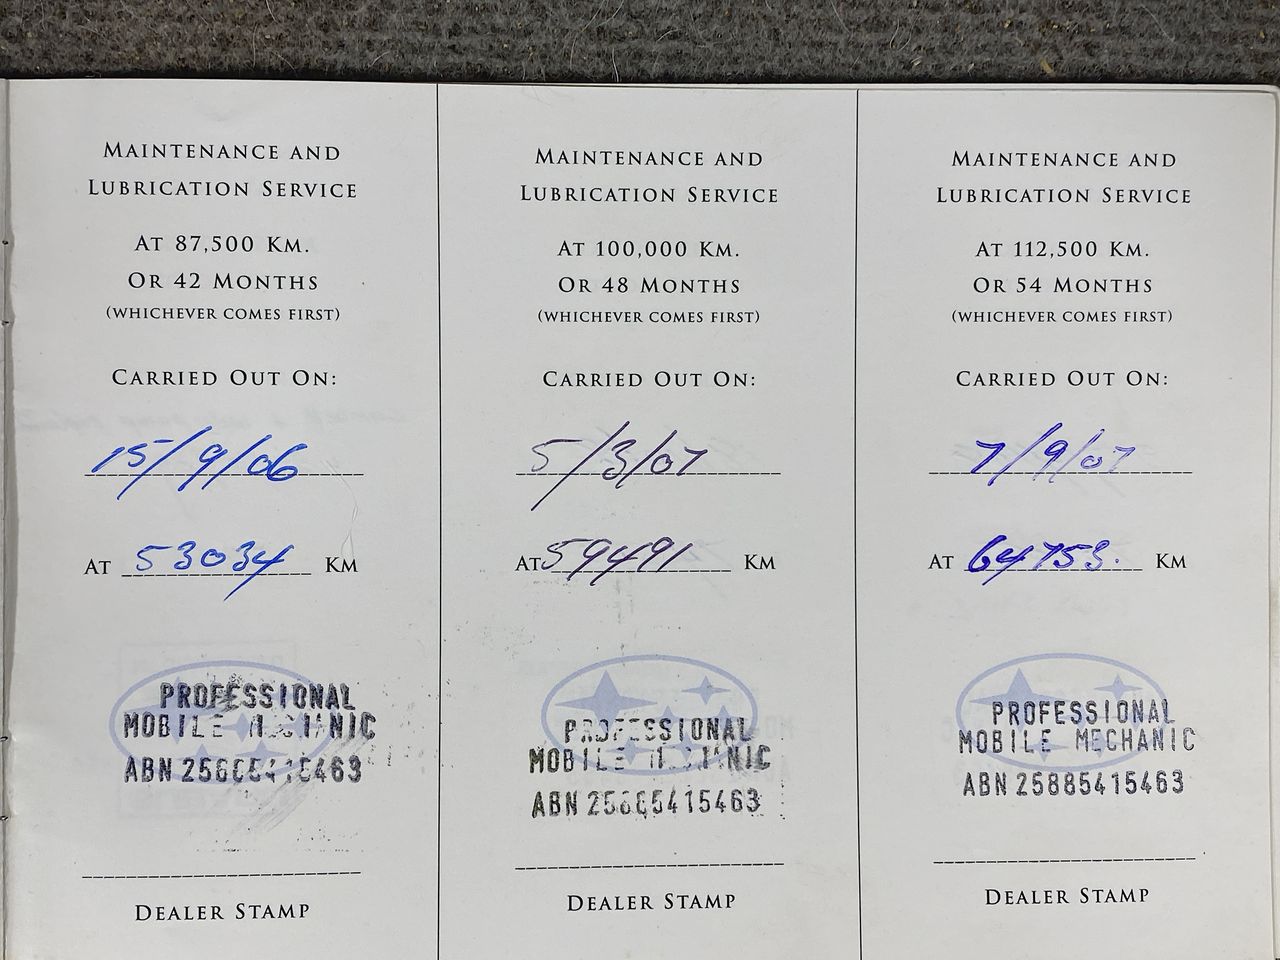 MAINTENANCE AND
LUBRICATION SERVICE
AT 87,500 KM.
OR 42 MONTHS
(WHICHEVER COMES FIRST)
CARRIED OUT ON:
15/9/06
AT 53034 KM
PROFESSIONAL
MOBILE
ABN
DEALER STAMP
MAINTENANCE AND
LUBRICATION SERVICE
AT 100,000 KM.
OR 48 MONTHS
(WHICHEVER COMES FIRST)
CARRIED OUT ON:
5/3/07
AT 59491 KM
PROFESSIONAL
MOBILE
ABN
DEALER STAMP
MAINTENANCE AND
LUBRICATION SERVICE
AT 112,500 KM.
OR 54 MONTHS
(WHICHEVER COMES FIRST)
CARRIED OUT ON:
7/9/07
AT 64753. KM
PROFESSIONAL
MOBILE MECHANIC
ABN 25885415463
DEALER STAMP